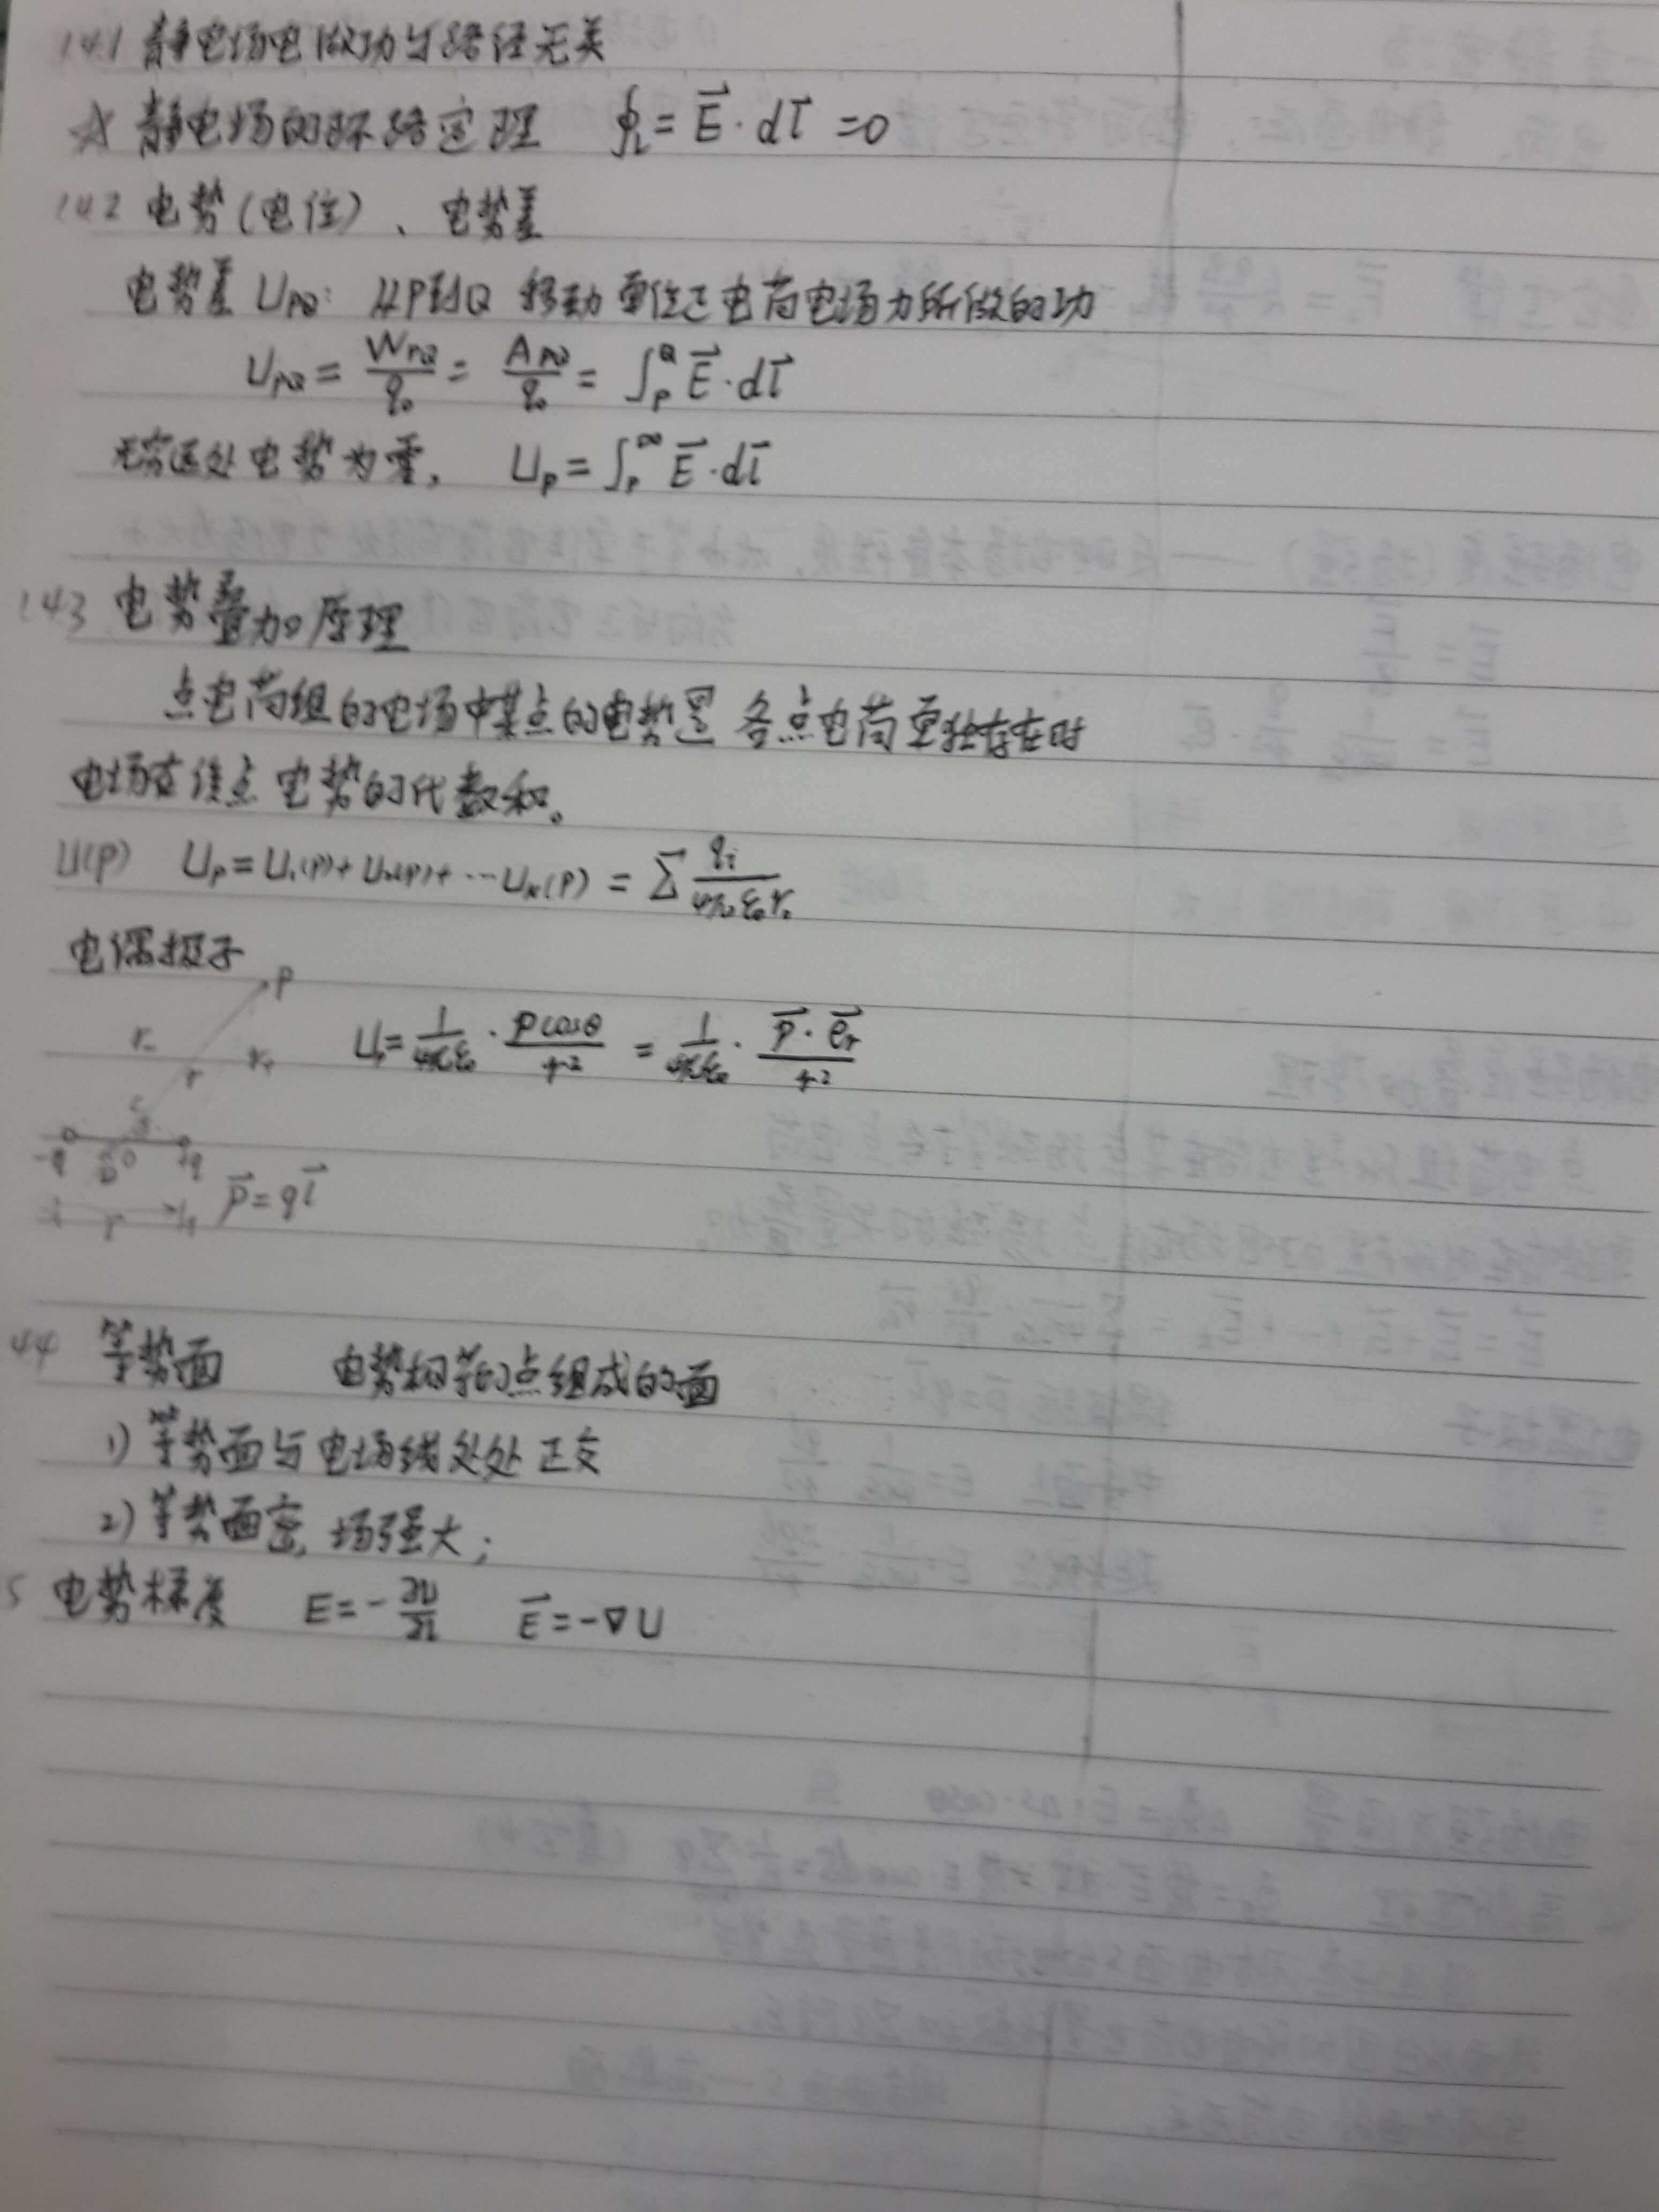 14.1 静电场电做功与路径无关
☆ 静电场的环路定理 ∮L = E⃗ · dl⃗ = 0
14.2 电势(电位)、电势差
电势差 UPQ: 从P到Q 移动单位正电荷电场力所做的功
UPQ = WPQ/q₀ = APQ/q₀ = ∫_P^Q E⃗ · dl⃗
无穷远处电势为零, U_P = ∫_P^∞ E⃗ · dl⃗
14.3 电势叠加原理
点电荷组的电场中某点的电势是 各点电荷单独存在时
电场在该点 电势的代数和。
U(P) U_P = U₁(P) + U₂(P) + ··· U_k(P) = Σ q_i/4πε₀r_i
电偶极子
P
r₋ r₊ U = 1/4πε₀ · Pcosθ/r² = 1/4πε₀ · P⃗ · e⃗r/r²
r
-q O +q
P⃗ = ql⃗
44 等势面 电势相等的点组成的面
1) 等势面与电场线处处正交
2) 等势面密, 场强大;
5 电势梯度 E = -∂U/∂l E⃗ = -∇U